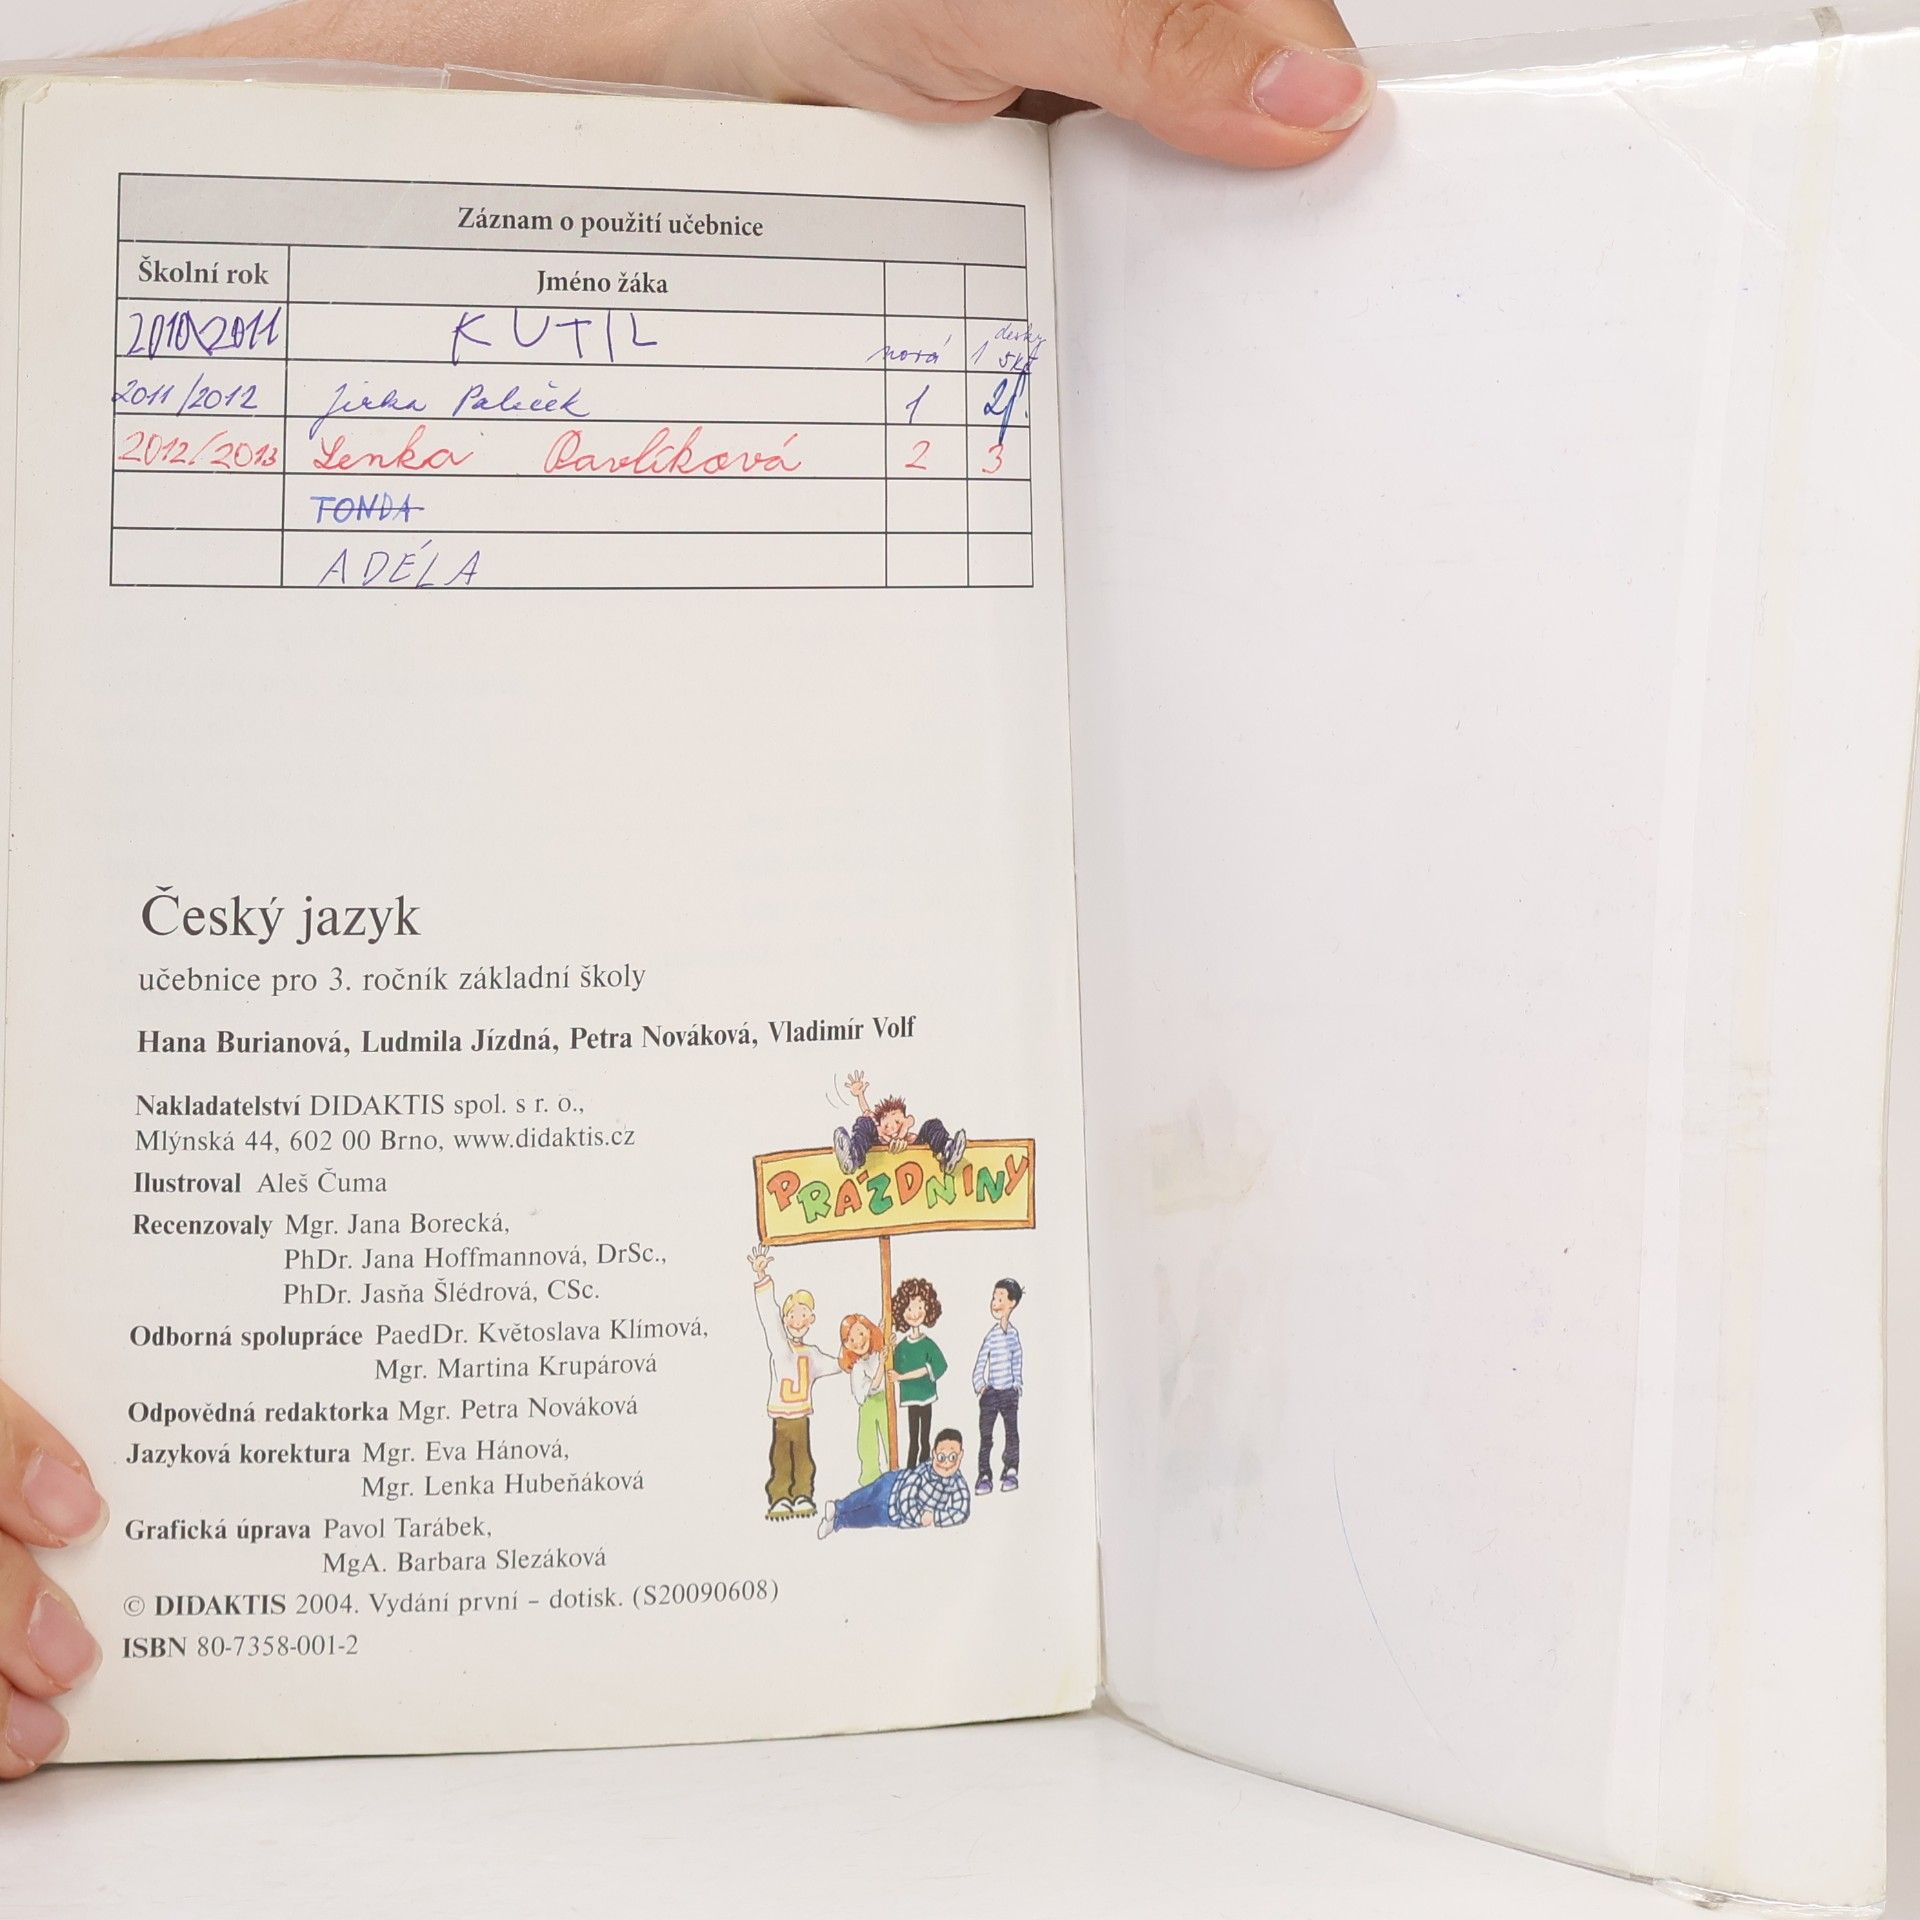 Záznam o použití učebnice
Školní rok Jméno žáka
2010/2011 KUTIL nová 1 desky 5kč
2011/2012 Jirka Paleček 1 2
2012/2013 Lenka Pavlíková 2 3
TONDA
ADÉLA
Český jazyk
učebnice pro 3. ročník základní školy
Hana Burianová, Ludmila Jízdná, Petra Nováková, Vladimír Volf
Nakladatelství DIDAKTIS spol. s r. o.,
Mlýnská 44, 602 00 Brno, www.didaktis.cz
Ilustroval Aleš Čuma
Recenzovaly Mgr. Jana Borecká,
PhDr. Jana Hoffmannová, DrSc.,
PhDr. Jasňa Šlédrová, CSc.
Odborná spolupráce PaedDr. Květoslava Klímová,
Mgr. Martina Krupárová
Odpovědná redaktorka Mgr. Petra Nováková
Jazyková korektura Mgr. Eva Hánová,
Mgr. Lenka Hubeňáková
Grafická úprava Pavol Tarábek,
MgA. Barbara Slezáková
© DIDAKTIS 2004. Vydání první – dotisk. (S20090608)
ISBN 80-7358-001-2
PRÁZDNINY
J